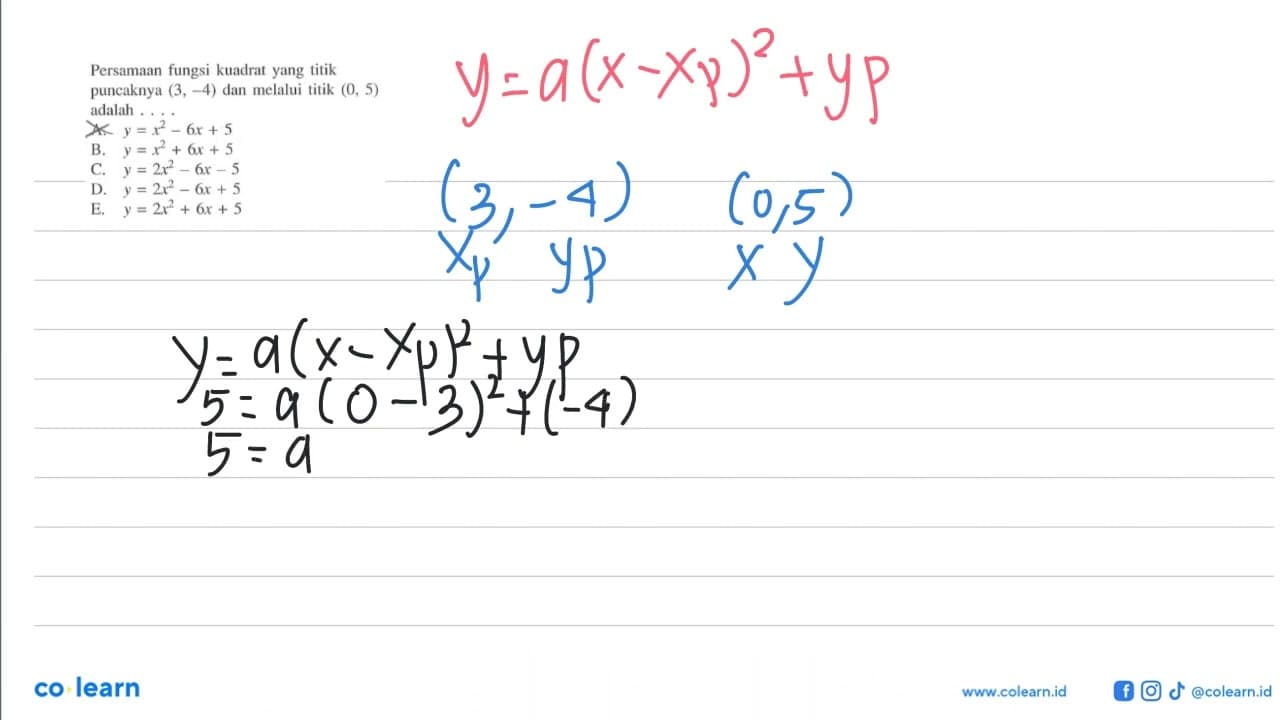 Persamaan fungsi kuadrat yang titik
puncaknya (3, –4) dan melalui titik (0, 5)
adalah . . . .
A. y = x² – 6x + 5
B. y = x² + 6x + 5
C. y = 2x² – 6x – 5
D. y = 2x² – 6x + 5
E. y = 2x² + 6x + 5
y = a(x - xp)² + yp
(3, -4) (0, 5)
xp yp x y
y = a(x - xp)² + yp
5 = a(0 - 3)² + (-4)
5 = a
co learn
www.colearn.id @colearn.id